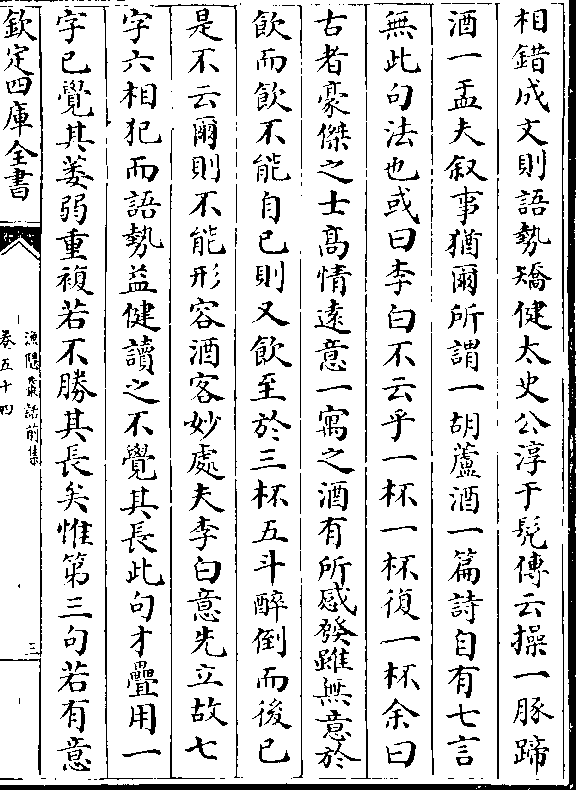 相錯成文則語勢矯健太史公淳于髠傳云操一豚蹄
酒一盂夫叙事猶爾所謂一胡蘆酒一篇詩自有七言
無此句法也或曰李白不云乎一杯一杯復一杯余曰
古者豪傑之士髙情逺意一寓之酒有所感發雖無意於
飲而飲不能自已則又飲至於三杯五斗醉倒而後已
是不云爾則不能形容酒客妙處夫李白意先立故七
字六相犯而語勢益健讀之不覺其長此句才疊用一
字已覺其萎弱重複若不勝其長矣惟第三句若有意
欽定四庫全書
漁隱叢話前集
卷五十四
三